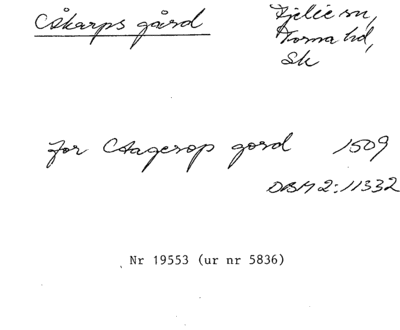 Åkarps gård
Fjelie sn,
Torna hd,
Sk
for Aagerop gord 1509
DBM 2:11332
Nr 19553 (ur nr 5836)